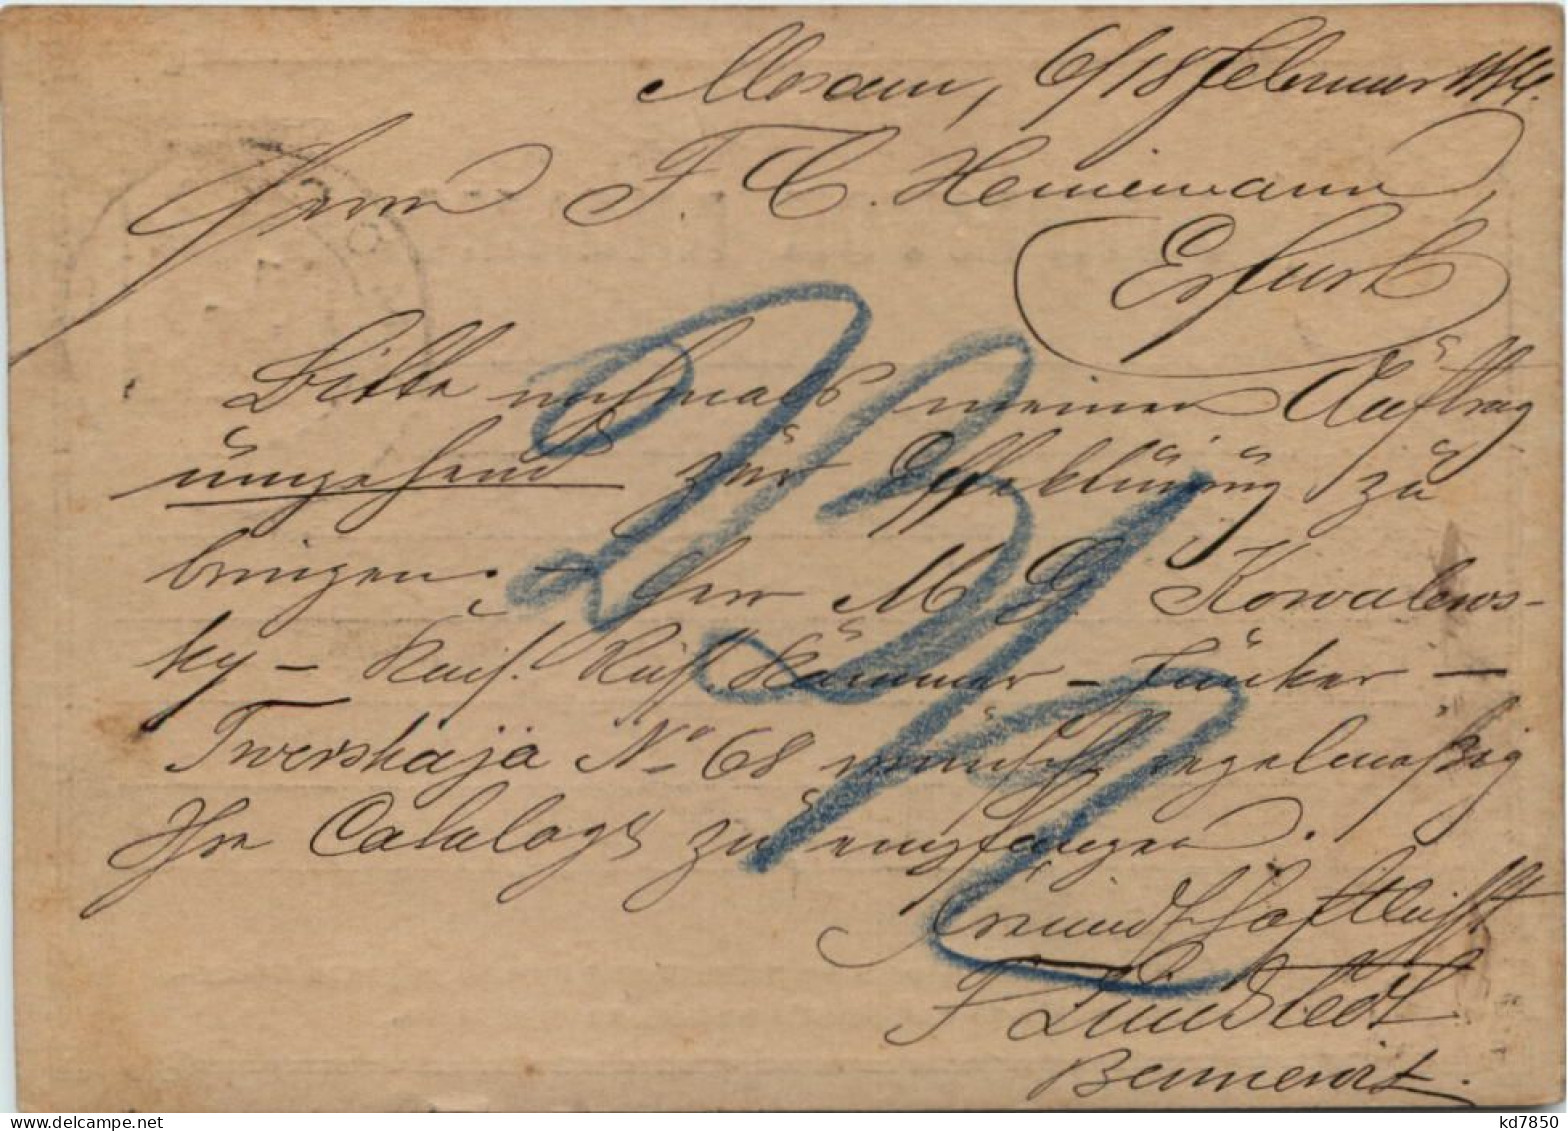 Moscau, 6/18 Februar
Herrn F. C. Heinemann,
Erfurt
Bitte nochmals meinen Auftrag
umgehend zur Effektuirung zu
bringen. – Herr M G Kowalews-
ky – Kais. Russ. Kammer-Junker –
Twerskaja No 68 wünscht regelmäßig
Ihre Cataloge zu empfangen.
Freundschaftlichst
F Lundstedt
kd7850